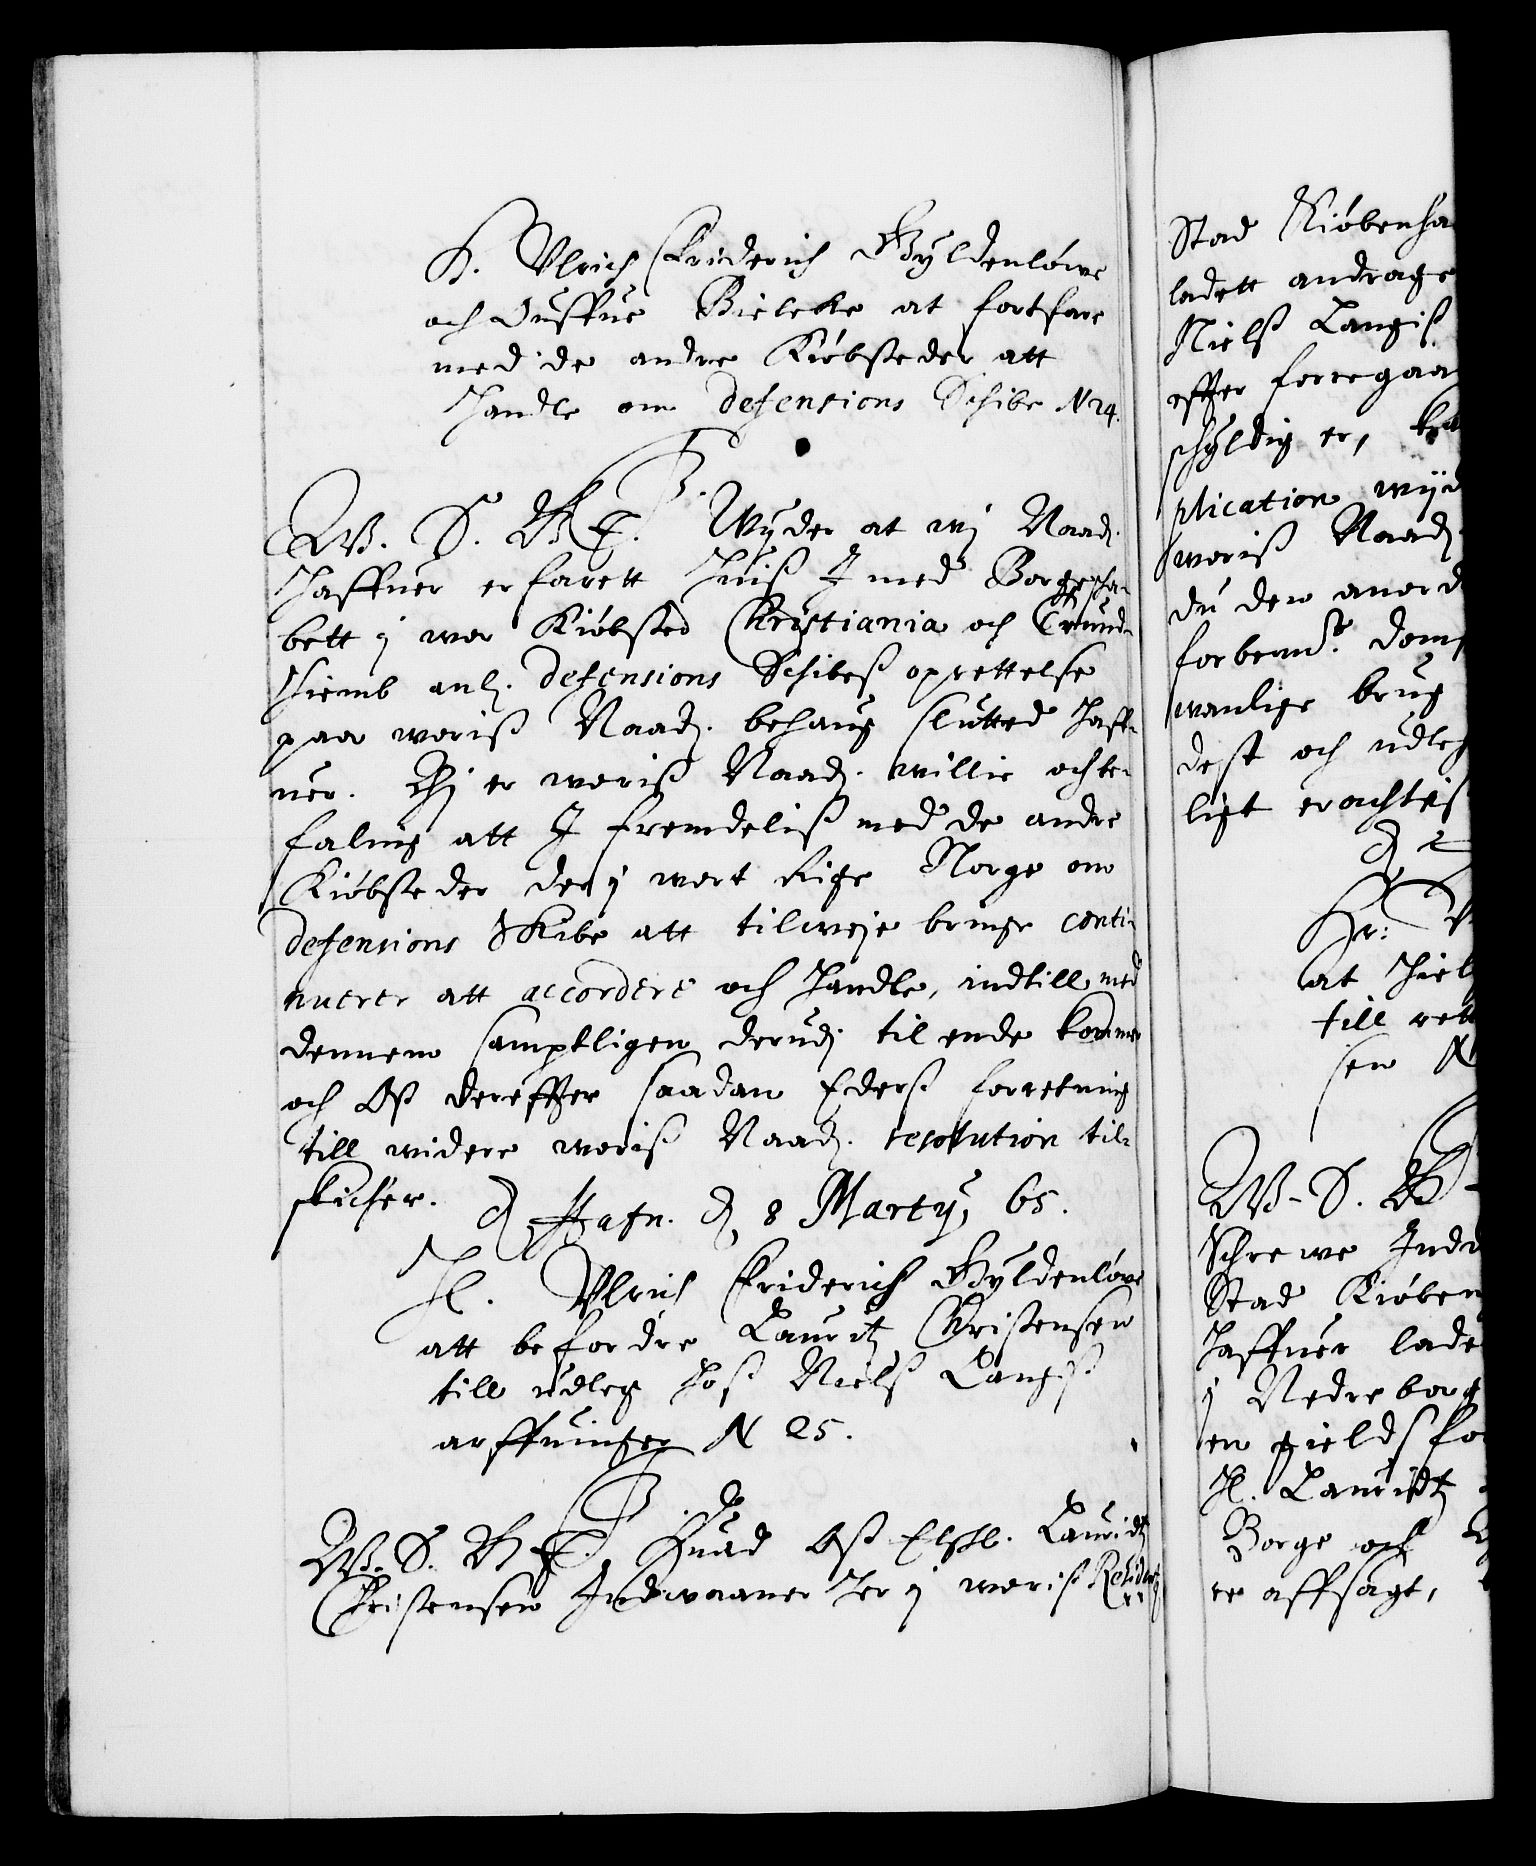 H. Ulrich Friderich Gyldenlöwe
och Ouffue Bielcke at fortfare
med de andre Kiöbsteder att
Handle om defensions Schibe N 24.
F3.
W. S. G. T. Wyder at wj Naad.
Haffuer erfarett Huiß I med Borgeska-
bett j wor Kiöbsted Christiania och Trund-
Hiemb anl. defensions Schibeß oprettelse
paa woriß Naad. behaug slutted Haff-
uer. Thj er woriß Naad. willie och be-
faling att I fremdeliß med de andre
Kiöbsteder der j wort Rige Norge om
defensions Skibe att tilweje bringe conti-
nuerer att accordere och Handle, indtill med
dennem samptligen derudj til ende kommer
och Oß dereffter saadan Eders forretning
till widere woriß Naad. resolution til-
skicker. Hafn. d. 8 Martij 65.
H. Ulrich Friderich Gyldenlöwe
att befordre Lauritz Christensen
till udleg hoß Nielß Langiß
arffuinger N 25.
F3.
W. S. G. T. Huad Oß Elskl. Lauridtz
Christensen Indwaaner Her j woriß Residentz
Stad Kiöbenha
ladett andrage
Nielß Langiß
effter forregaa
schyldig er,
plication wijd
woriß Naad.
du den anord
forbemt. dom
wanlige brug
dest och udleg
ligt erachtis
Hr:
at Hiel
till rett
sen N
W. S. G
Schrewe Indw
Stad Kiöben
Haffuer lade
j Nedreborg
en gields fo
H. Lauridtz
Borge och
re affsagt,